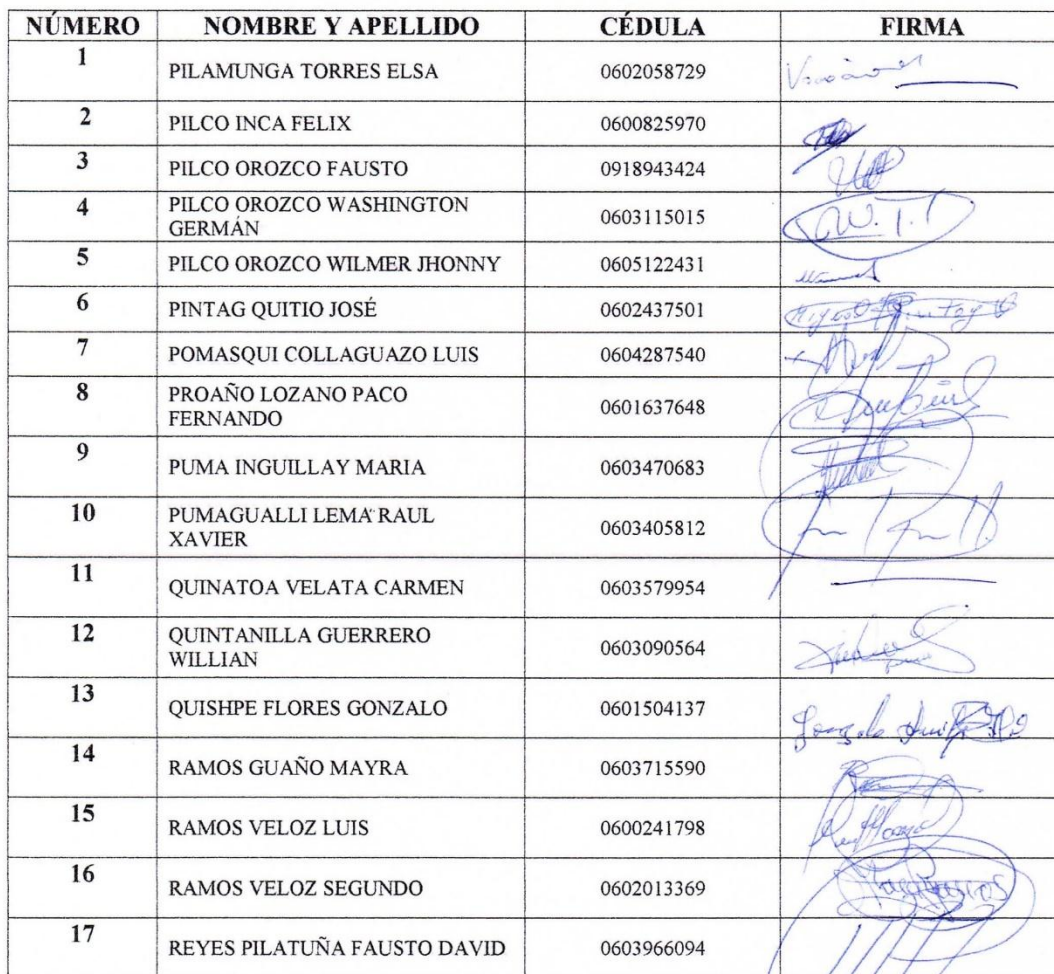 NÚMERO NOMBRE Y APELLIDO CÉDULA FIRMA
1 PILAMUNGA TORRES ELSA 0602058729
2 PILCO INCA FELIX 0600825970
3 PILCO OROZCO FAUSTO 0918943424
4 PILCO OROZCO WASHINGTON
GERMÁN 0603115015 W.T.
5 PILCO OROZCO WILMER JHONNY 0605122431
6 PINTAG QUITIO JOSÉ 0602437501
7 POMASQUI COLLAGUAZO LUIS 0604287540
8 PROAÑO LOZANO PACO
FERNANDO 0601637648
9 PUMA INGUILLAY MARIA 0603470683
10 PUMAGUALLI LEMA RAUL
XAVIER 0603405812
11 QUINATOA VELATA CARMEN 0603579954
12 QUINTANILLA GUERRERO
WILLIAN 0603090564
13 QUISHPE FLORES GONZALO 0601504137
14 RAMOS GUAÑO MAYRA 0603715590
15 RAMOS VELOZ LUIS 0600241798
16 RAMOS VELOZ SEGUNDO 0602013369
17 REYES PILATUÑA FAUSTO DAVID 0603966094